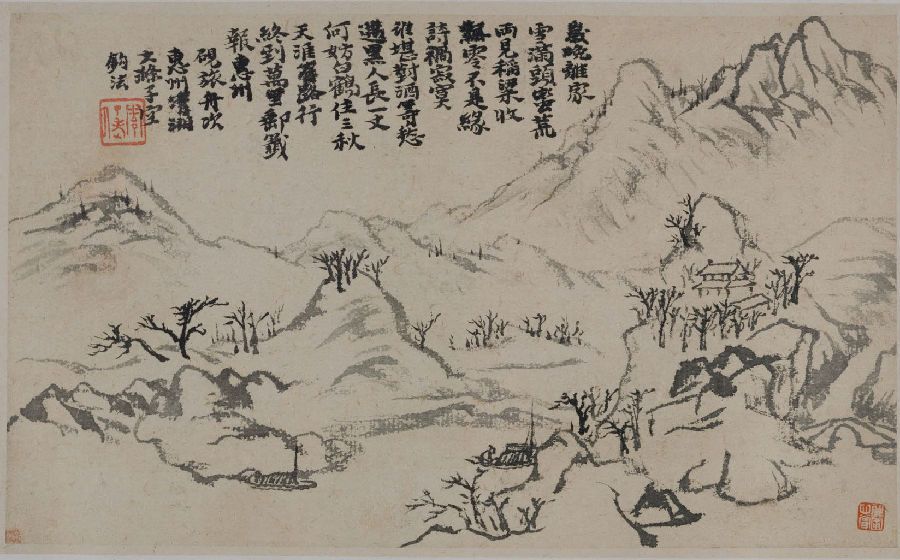 歲晚離家
雪滿頭蠻荒
兩見稻粱收
飄零不是緣
詩禍寂寞
誰堪對酒愁
黑人長一丈
何妨白鶴住三秋
天涯路行
終到萬里郵籤
報惠州
硯旅舟次
惠州湖
大滌子寫